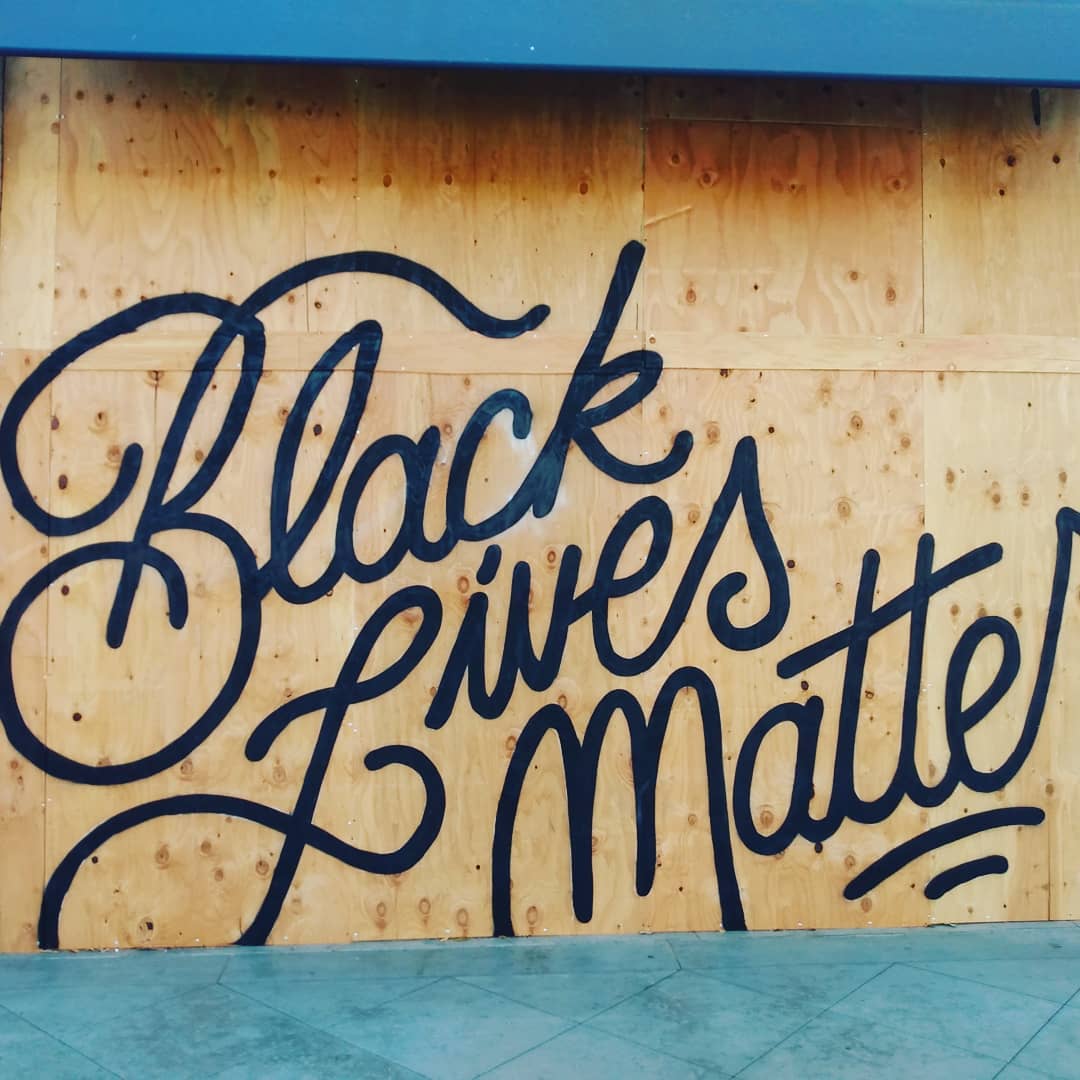 Black
Lives
Matte